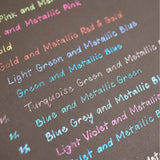 Pink and Metallic Pink
Gold
Gold and Metallic Red & Gold
Light Green and Metallic Blue
Green and Metallic Blue
Turquoise Green and Metallic
Blue and Metallic Green
Blue Grey and Metallic Blue
Light Violet and Metallic
and Metallic Blue